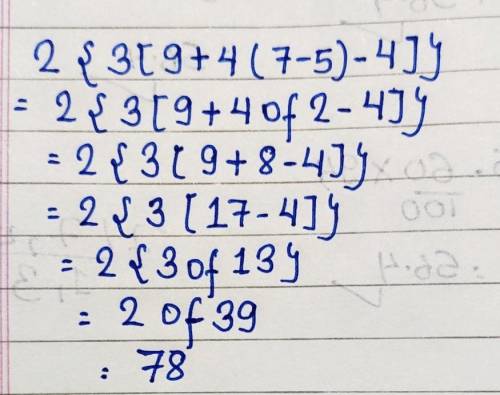 2 { 3 [ 9 + 4 ( 7 - 5 ) - 4 ] }
= 2 { 3 [ 9 + 4 of 2 - 4 ] }
= 2 { 3 [ 9 + 8 - 4 ] }
= 2 { 3 [ 17 - 4 ] }
= 2 { 3 of 13 }
= 2 of 39
: 78